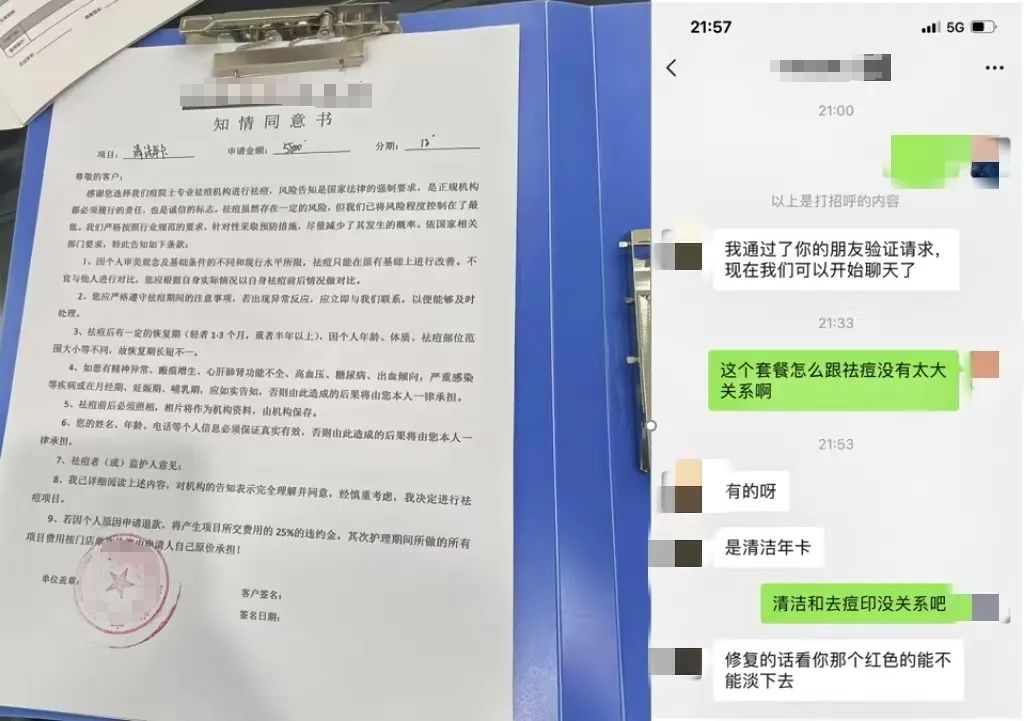 知情同意书
项目：清洁卡 申请金额：5800 分期：12
尊敬的客户：
感谢您选择我们痘院士专业祛痘机构进行祛痘，风险告知是国家法律的强制要求，是正规机构
都必须履行的责任，也是诚信的标志。祛痘虽然存在一定的风险，但我们已将风险程度控制在了最
低。我们严格按照行业规范的要求，针对性采取预防措施，尽量减少了其发生的概率。依国家相关
部门要求，特此告知如下条款：
1、因个人审美观念及基础条件的不同和现行水平所限，祛痘只能在原有基础上进行改善。不
宜与他人进行对比，您应根据自身实际情况以自身祛痘前后情况做对比。
2、您应严格遵守祛痘期间的注意事项，若出现异常反应，应立即与我们联系，以便能够及时
处理。
3、祛痘后有一定的恢复期（轻者1-3个月，重者半年以上），因个人年龄、体质、祛痘部位范
围大小等不同，故恢复期长短不一、
4、如患有精神异常、瘢痕增生、心肝肺肾功能不全、高血压、糖尿病、出血倾向，严重感染
等疾病或在月经期、妊娠期、哺乳期，应如实告知，否则由此造成的后果将由您本人一律承担。
5、祛痘前后必须照相，相片将作为机构资料，由机构保存。
6、您的姓名、年龄、电话等个人信息必须保证真实有效，否则由此造成的后果将由您本人一
律承担。
7、祛痘者（或）监护人意见：
8、我已详细阅读上述内容，对机构的告知表示完全理解并同意，经慎重考虑，我决定进行祛
痘项目。
9、若因个人原因申请退款、将产生项目所交费用的25%的违约金，其次护理期间所做的所有
项目费用按门店单 由申请人自己原价承担！
单位盖章：
客户签名：
签名日期：
21:57 5G
21:00
以上是打招呼的内容
我通过了你的朋友验证请求，
现在我们可以开始聊天了
21:33
这个套餐怎么跟祛痘没有太大
关系啊
21:53
有的呀
是清洁年卡
清洁和去痘印没关系吧
修复的话看你那个红色的能不
能淡下去